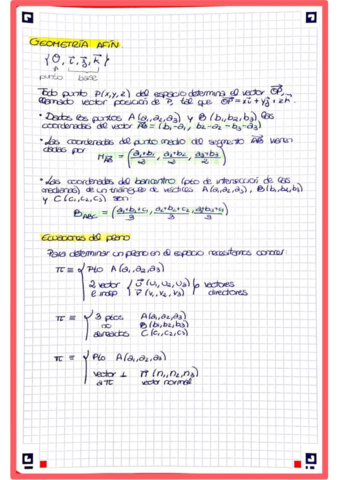 GEOMETRÍA AFÍN.
{O, i⃗, j⃗, k⃗}
punto base
Todo punto P(x,y,z) del espacio determina el vector OP⃗,
llamado vector posición de P, tal que OP⃗ = xi⃗ + yj⃗ + zk⃗.
• Dados los puntos A (a₁,a₂,a₃) y B (b₁,b₂,b₃) las
coordenadas del vector AB⃗ = (b₁-a₁, b₂-a₂-b₃-a₃)
• Las coordenadas del punto medio del segmento AB vienen
dadas por
M_AB = (a₁+b₁/2, a₂+b₂/2, a₃+b₃/2)
• Las coordenadas del baricentro (pto de intersección de las
medianas) de un triángulo de vértices A(a₁,a₂,a₃), B(b₁,b₂,b₃)
y C(c₁,c₂,c₃) son
B_ABC = (a₁+b₁+c₁/3, a₂+b₂+c₂/3, a₃+b₃+c₃/3)
Ecuaciones del plano
Para determinar un plano en el espacio necesitamos conocer:
π ≡ { Pto A(a₁,a₂,a₃)
2 vector { U⃗ (u₁,u₂,u₃) } vectores
e indep V⃗ (v₁,v₂,v₃) directores
π ≡ { 3 ptos A(a₁,a₂,a₃)
no B(b₁,b₂,b₃)
alineados C(c₁,c₂,c₃)
π ≡ { Pto A(a₁,a₂,a₃)
vector ⊥ n⃗ (n₁,n₂,n₃)
a π vector normal